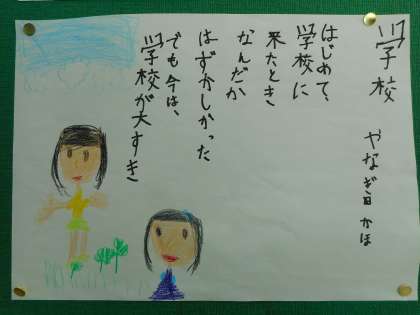 学校
やなぎ日 かほ
はじめて、
学校に
来たとき
なんだか
はずかしかった
でも今は、
学校が大すき